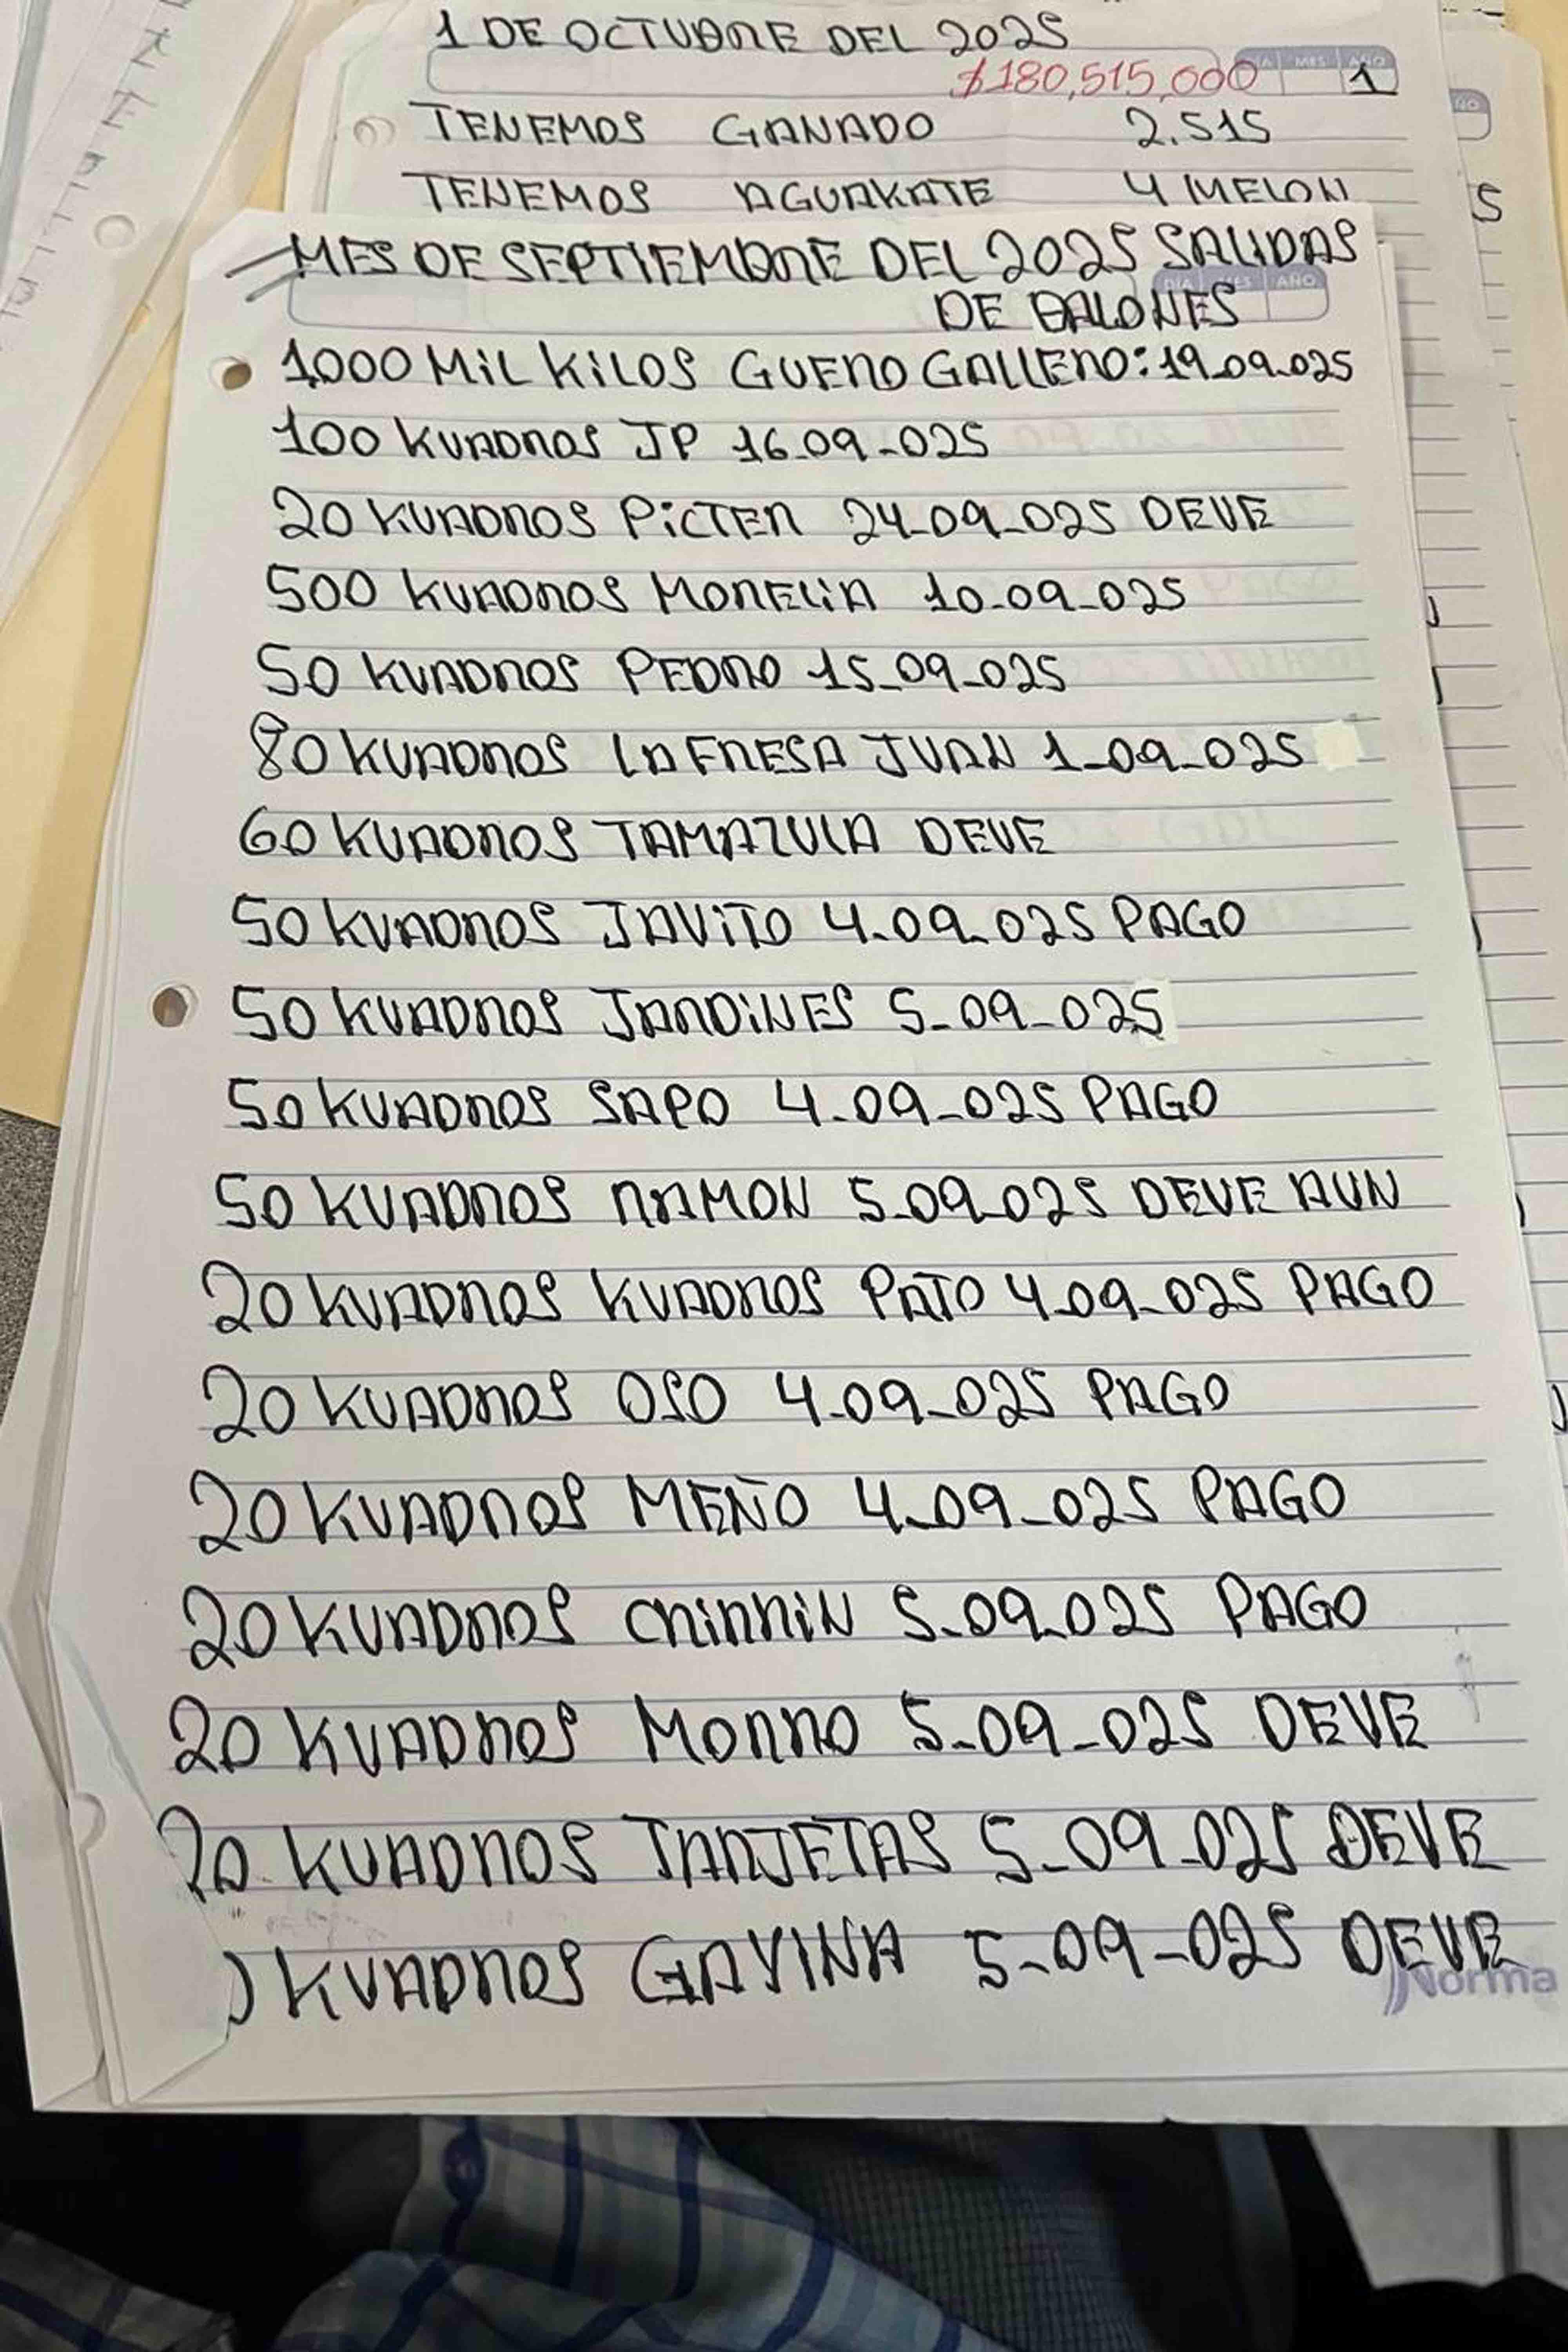 1 DE OCTUBRE DEL 2025
$180,515,000
DIA MES AÑO
1
TENEMOS GANADO 2.515
TENEMOS AGUAKATE 4 MELON
MES DE SEPTIEMBRE DEL 2025 SALIDAS
DE BALONES
DIA MES AÑO
1000 MiL KiLOS GUERO GALLERO: 19-09-025
100 KUADROS JP 16-09-025
20 KUADROS PiCTER 24-09-025 DEVE
500 KUADROS MORELiA 10-09-025
50 KUADROS PEDRO 15-09-025
80 KUADROS LA FRESA JUAN 1-09-025
60 KUADROS TAMAZULA DEVE
50 KUADROS JAViTO 4-09-025 PAGO
50 KUADROS JARDiNES 5-09-025
50 KUADROS SAPO 4-09-025 PAGO
50 KUADROS RAMON 5-09-025 DEVE AUN
20 KUADROS KUADROS PATO 4-09-025 PAGO
20 KUADROS OSO 4-09-025 PAGO
20 KUADROS MEÑO 4-09-025 PAGO
20 KUADROS 5-09-025 PAGO
20 KUADROS MORRO 5-09-025 DEVE
20 KUADROS TARJETAS 5-09-025 DEVE
KUADROS GAVINA 5-09-025 DEVE
Norma